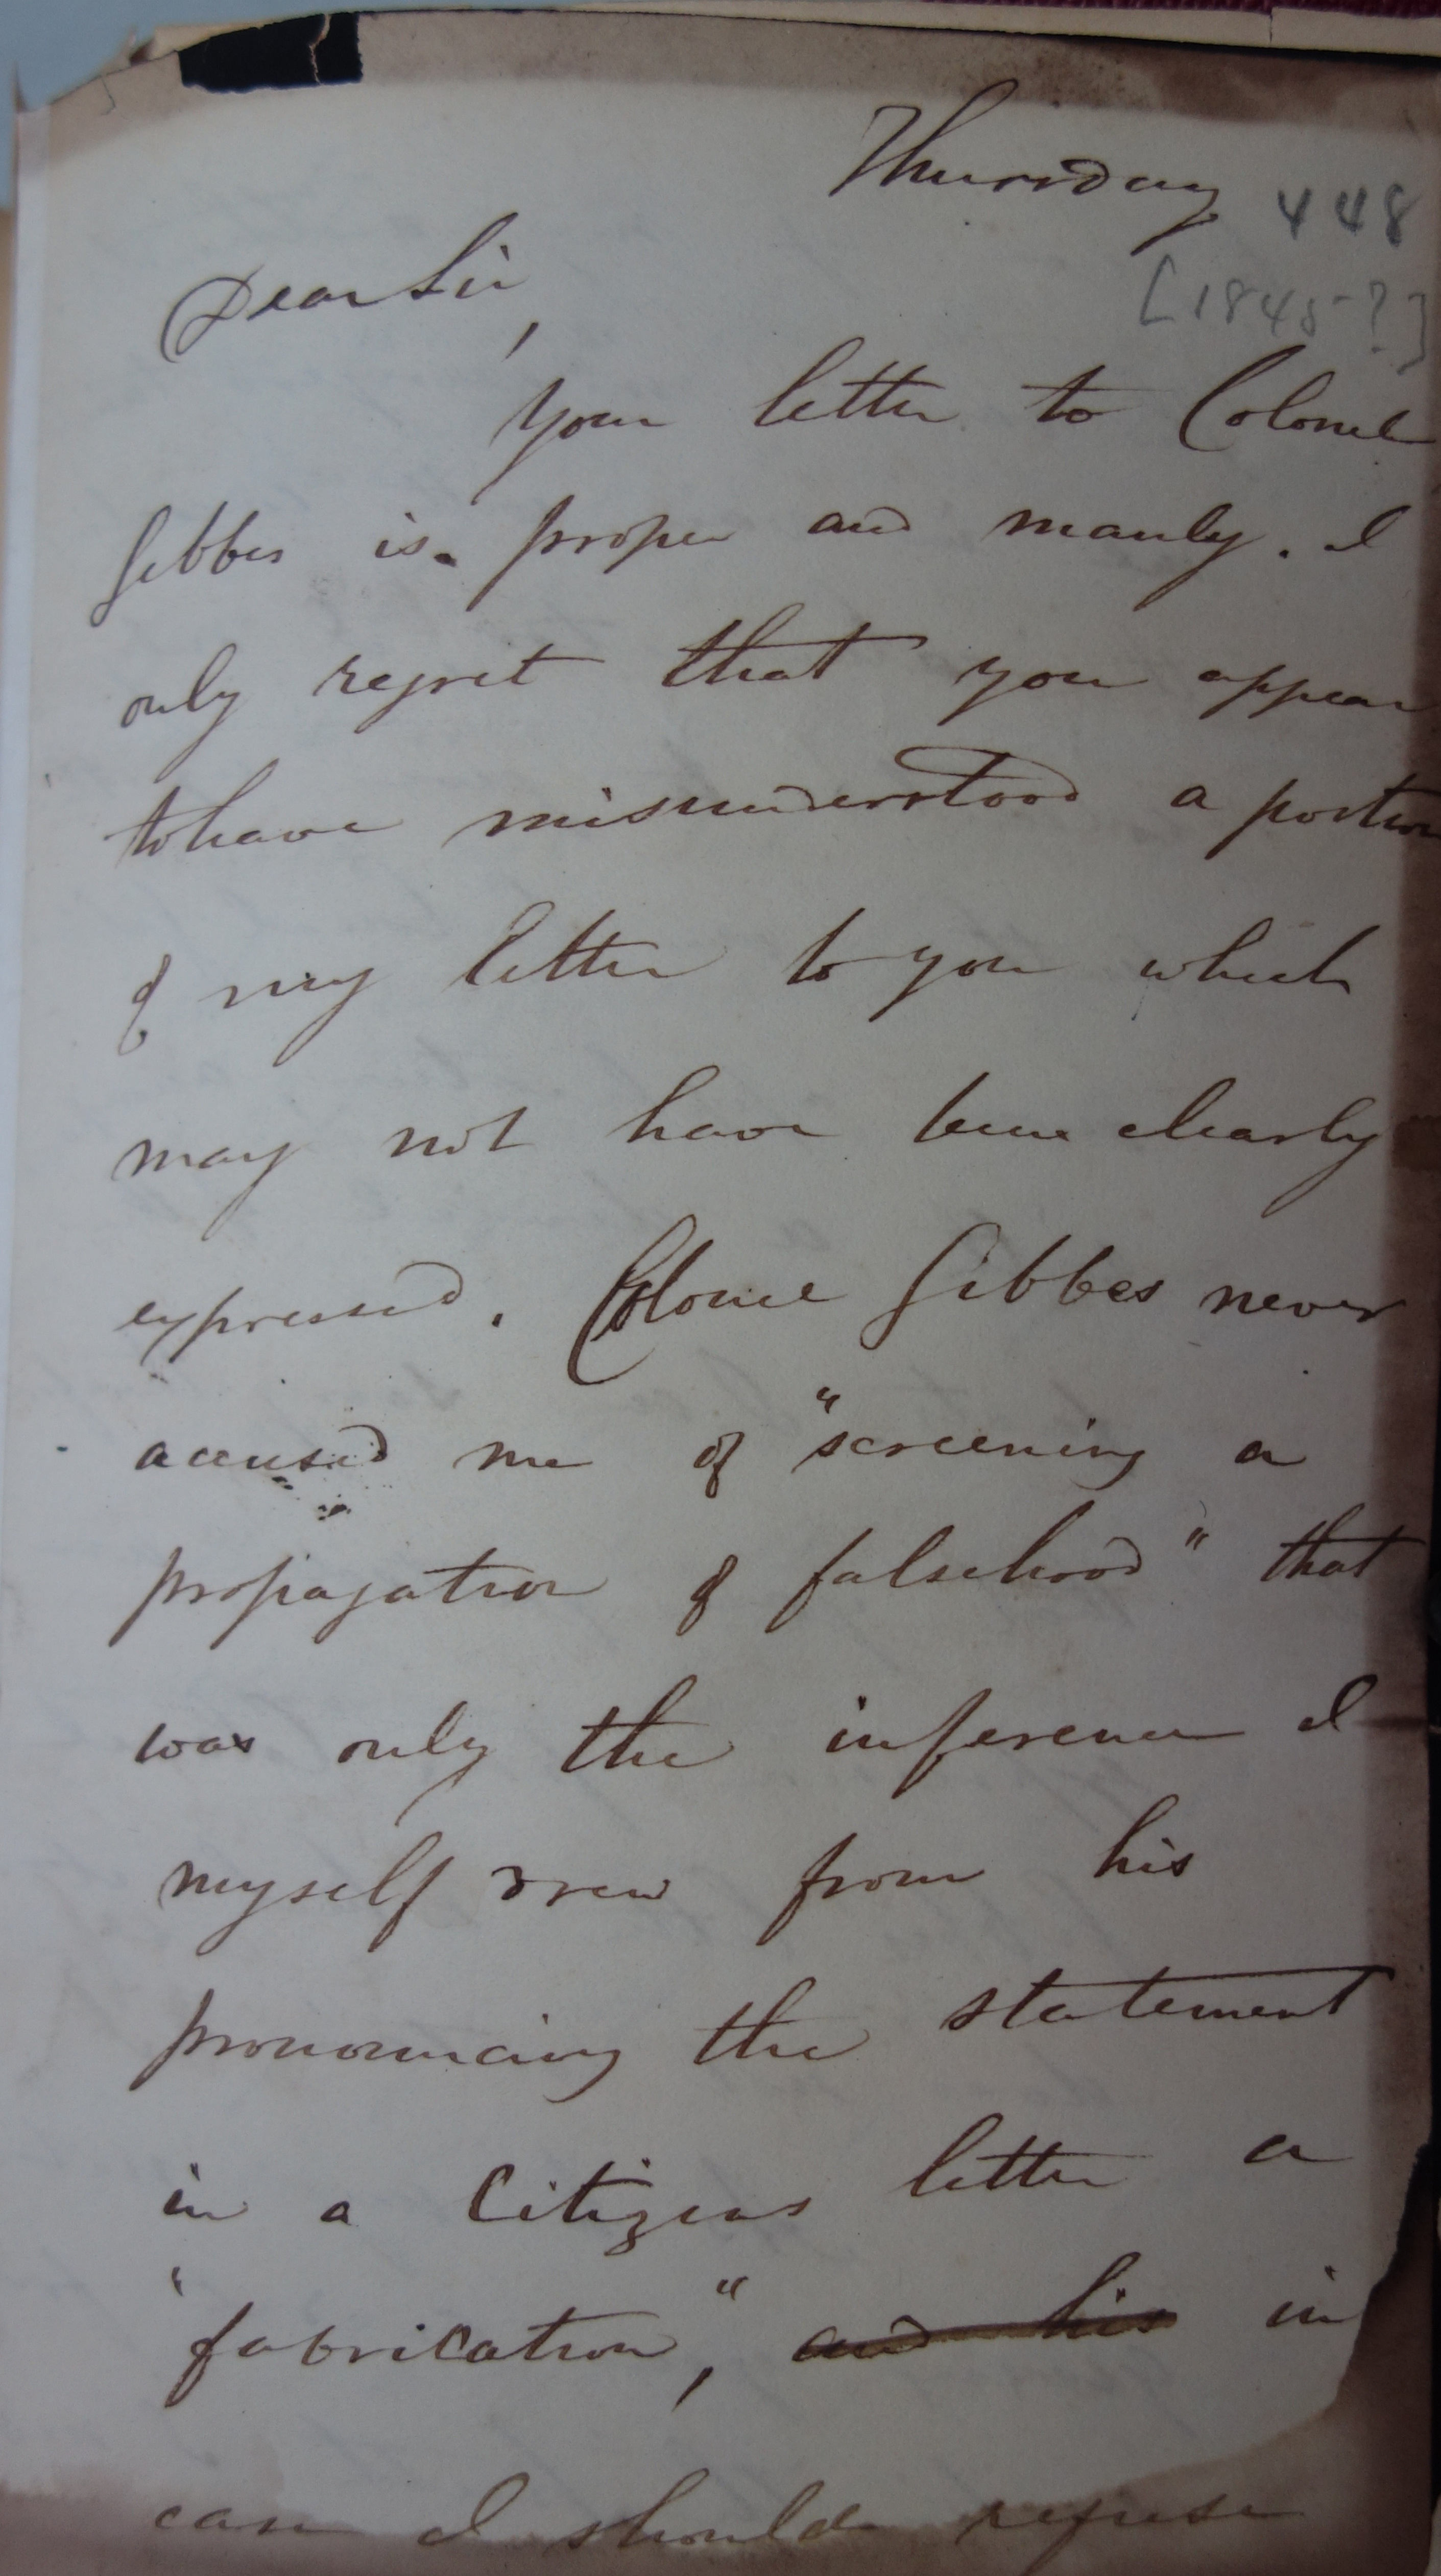 Thursday
448
[1845?]
Dear Sir,
Your letter to Colonel
Gibbes is proper and manly. I
only regret that you appear
to have misunderstood a portion
of my letter to you which
may not have been clearly
expressed. Colonel Gibbes never
accused me of "screening a
propagation of falsehood" that
was only the inference I
myself drew from his
pronouncing the statement
in a Citizens letter a
"fabrication," and his in
case I should refuse